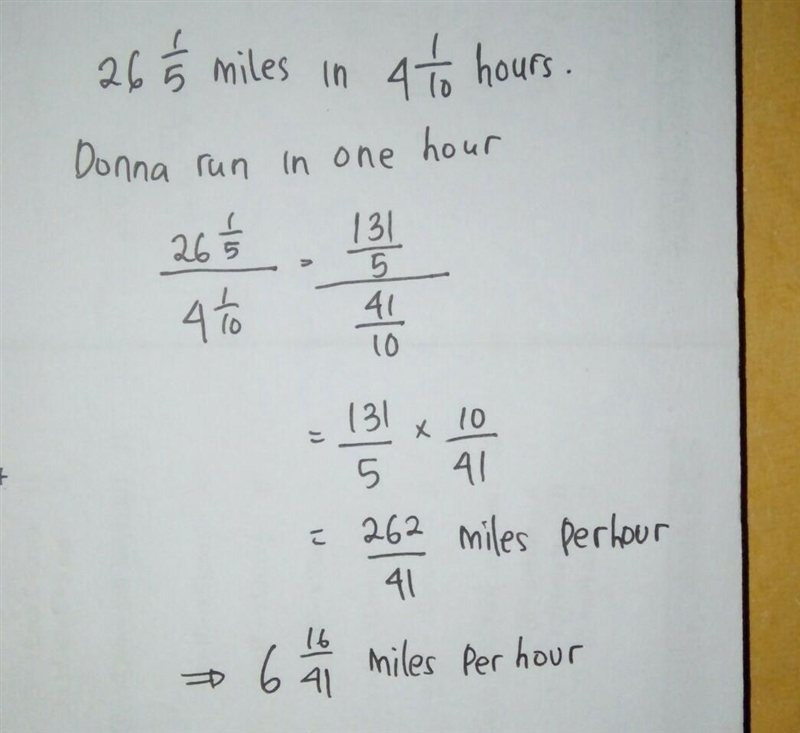 26 1/5 miles in 4 1/10 hours.
Donna run in one hour
26 1/5 / 4 1/10 = 131/5 / 41/10
= 131/5 × 10/41
= 262/41 miles perhour
⇒ 6 16/41 miles Per hour